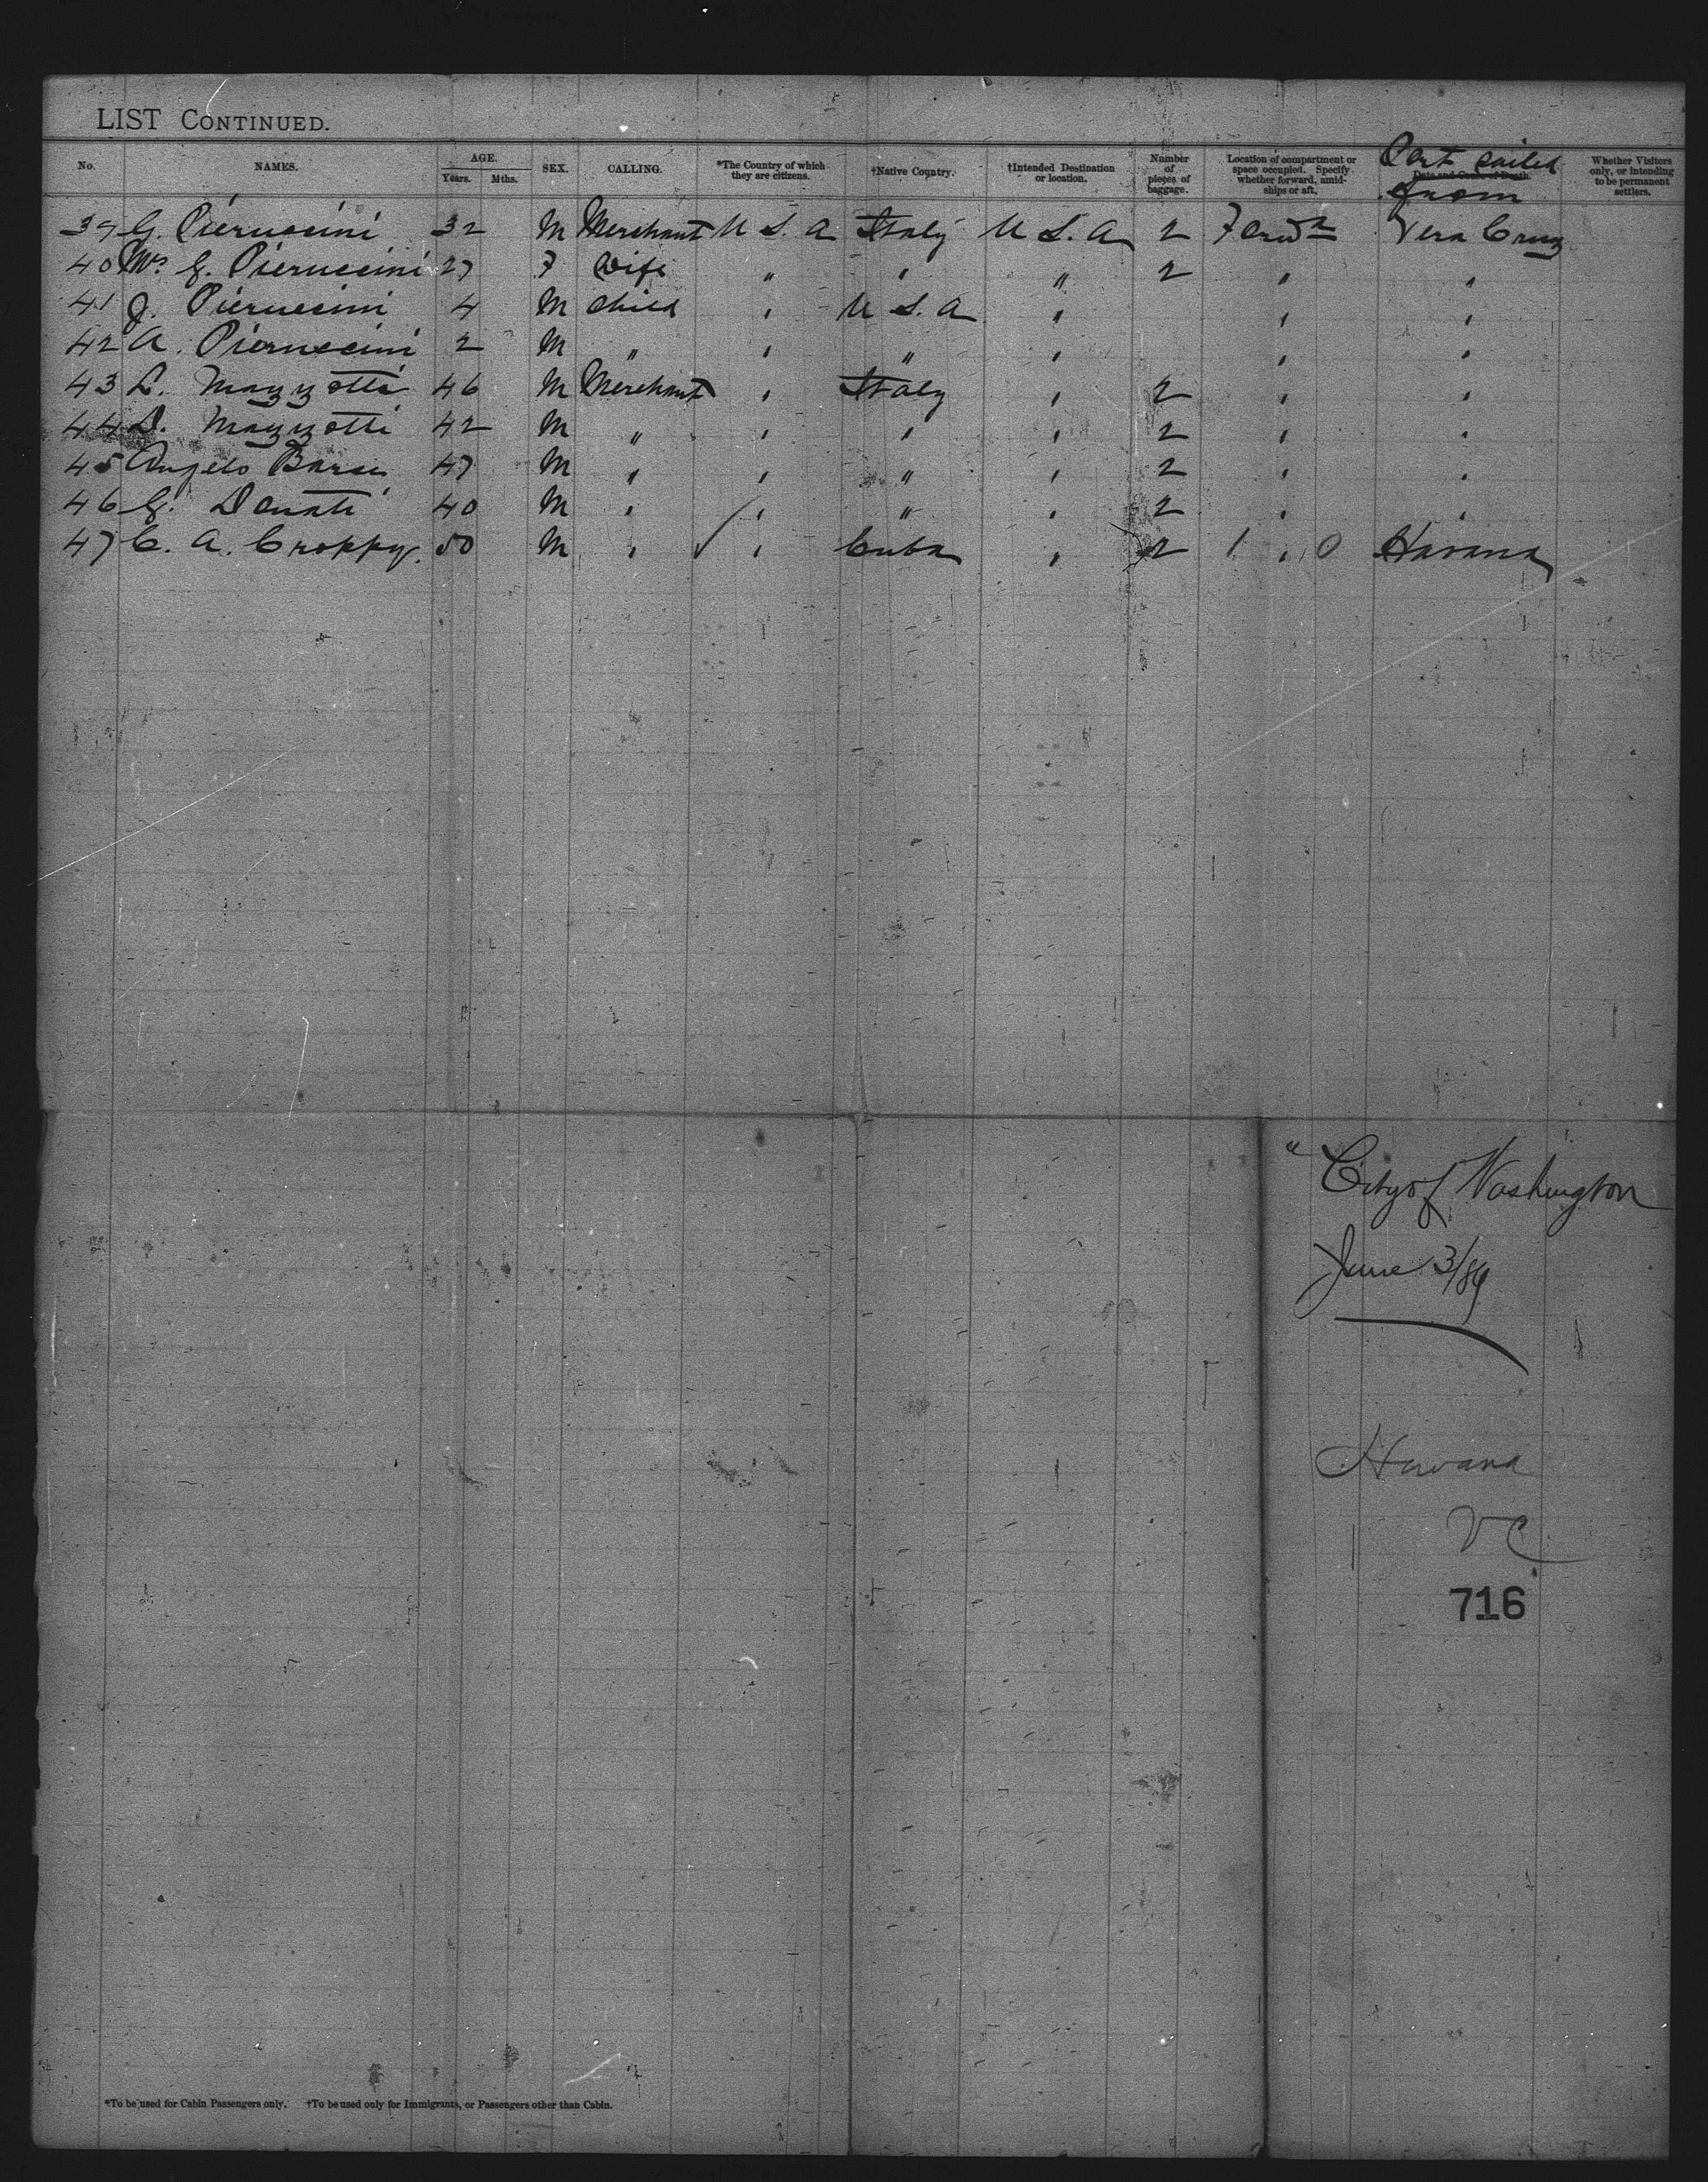 LIST CONTINUED.
No. NAMES. AGE. Years. Mths. SEX. CALLING. *The Country of which they are citizens. †Native Country. †Intended Destination or location. Number of pieces of baggage. Location of compartment or space occupied. Specify whether forward, amidships or aft. Date and Cause of Death. Port sailed from Whether Visitors only, or intending to be permanent settlers.
39 G. Pieruccini 32 M Merchant U S. A Italy U S. A 2 Forwd Vera Cruz
40 Mrs G. Pieruccini 27 F Wife " " " 2 " "
41 J. Pieruccini 4 M Child " U S. A " " "
42 A. Pieruccini 2 M " " " " " "
43 L. Mazzotti 46 M Merchant " Italy " 2 " "
44 D. Mazzotti 42 M " " " " 2 " "
45 Angelo 47 M " " " " 2 " "
46 G. Donati 40 M " " " " 2 " "
47 C. A. Croppy. 50 M " " Cuba " 2 1 " 0 Havana
"City of Washington
June 3/89
Havana
VC
716
*To be used for Cabin Passengers only. †To be used only for Immigrants, or Passengers other than Cabin.